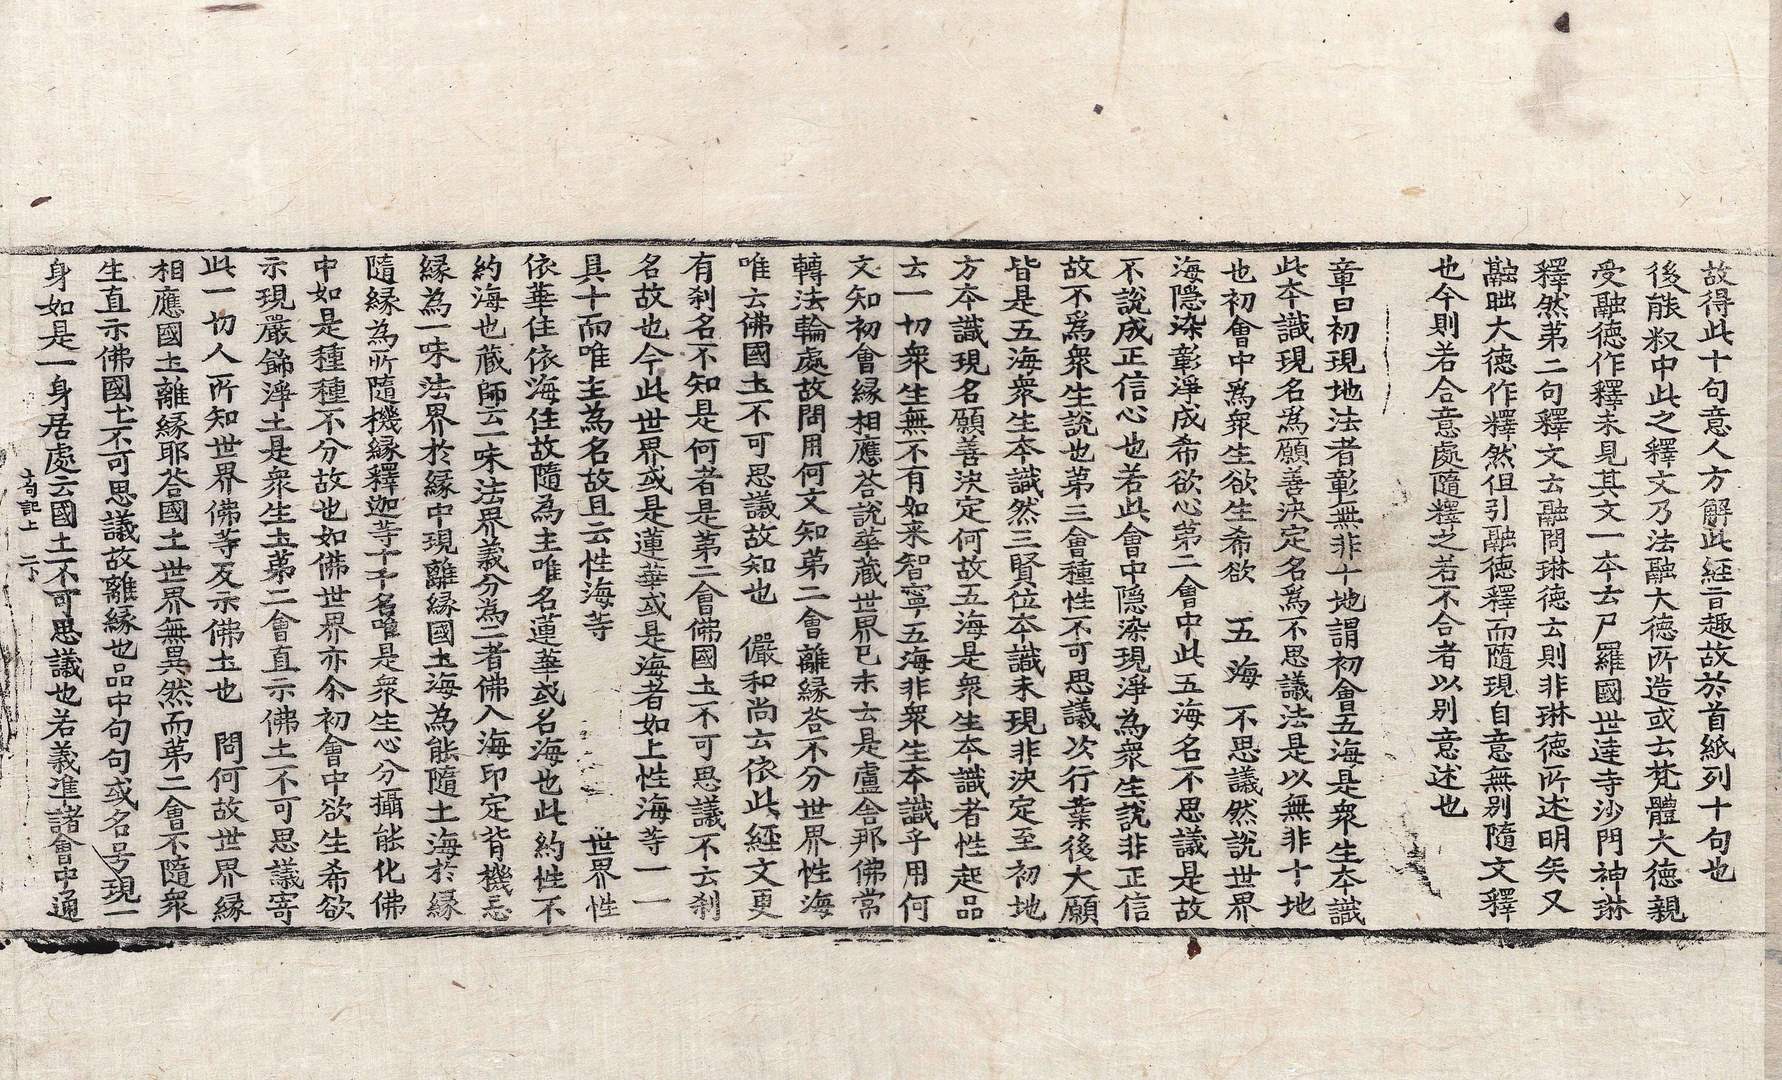 故得此十句意人方解此経旨趣故於首紙列十句也
後能叙中此之釋文乃法融大德所造或云梵體大德親
受融德作釋未見其文一本云尸羅國世達寺沙門神琳
釋然第二句釋文云融問琳德云則非琳德所述明矣又
融昢大德作釋然但引融德釋而隨現自意無別隨文釋
也今則若合意處隨釋之若不合者以別意述也
章曰初現地法者彰無非十地謂初會五海是衆生本識
此本識現名為願善決定名為不思議法是以無非十地
也初會中為衆生欲生希欲　五海　不思議然說世界
海隱染彰淨成希欲心第二會中此五海名不思議是故
不說成正信心也若此會中隱染現淨為衆生說非正信
故不為衆生說也第三會種性不可思議次行業後大願
皆是五海衆生本識然三賢位本識未現非決定至初地
方本識現名願善決定何故五海是衆生本識者性起品
云一切衆生無不有如来智寧五海非衆生本識乎用何
文知初會緣相應荅說華藏世界已末云是盧舍那佛常
轉法輪處故問用何文知第二會離緣荅不分世界性海
唯云佛國土不可思議故知也　儼和尚云依此経文更
有刹名不知是何者是第二會佛國土不可思議不云刹
名故也今此世界或是蓮華或是海者如上性海等一一
具十而唯主為名故且云性海等　　　　　世界性
依華住依海住故隨為主唯名蓮華或名海也此約性不
約海也藏師云一味法界義分為二者佛入海印定背機忘
緣為一味法界於緣中現離緣國土海為能隨土海於緣
隨緣為所隨機緣釋迦等十千名唯是衆生心分攝能化佛
中如是種種不分故也如佛世界亦尒初會中欲生希欲
示現嚴餙淨土是衆生土第二會直示佛土不可思議寄
此一切人所知世界佛等及示佛土也　問何故世界緣
相應國土離緣耶荅國土世界無異然而第二會不隨衆
生直示佛國土不可思議故離緣也品中句句或名号現一
身如是一身居處云國土不可思議也若義准諸會中通
十句記上　二下